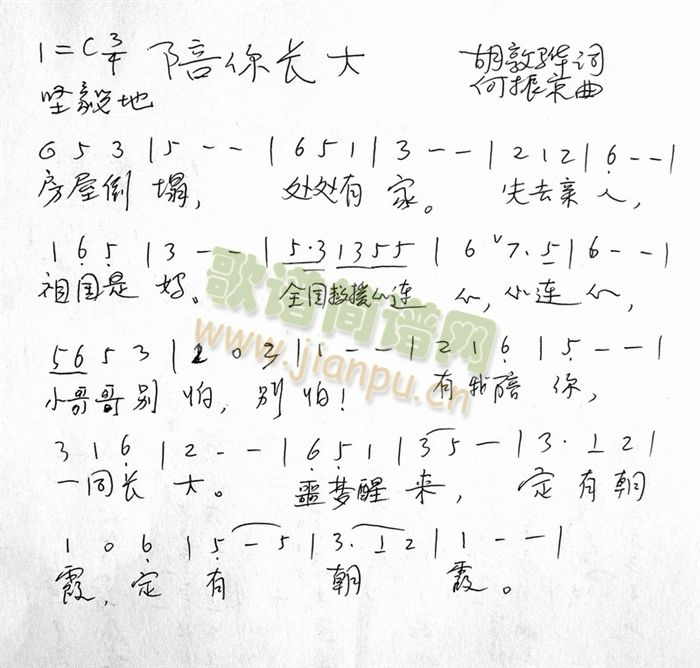 1=C 3/4 陪你长大 胡敦骅词
坚毅地 何振京曲
6 5 3 | 5 - - | 6 5 1 | 3 - - | 2 1 2 | 6 - - |
房屋倒塌， 处处有家。 失去亲人，
1 6 5 | 3 - - | 5·3 1355 | 6 ˅7·5 | 6 - - |
祖国是妈。 全国救援心连心，心连心，
5 6 5 3 | 2 0 3 | 1 - - | 2 1 6 | 5 - - |
小哥哥别怕，别怕！ 有我陪你，
3 1 6 | 2 - - | 6 5 1 | 3 5 - | 3·1 2 |
一同长大。 噩梦醒来，定有朝
1 0 6 | 5 - 5 | 3·1 2 | 1 - - |
霞，定有朝霞。
歌谱简谱网
www.jianpu.cn